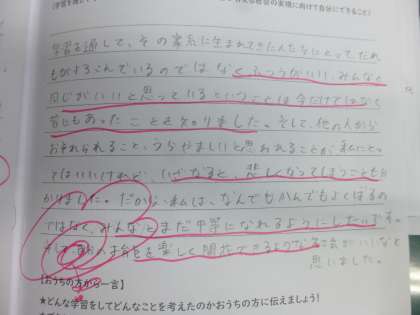 学習を通して、その家系に生まれてきた人たちにとって、だれ
もがよろこんでいるのではなくふつうがいい、みんなと
同じがいいと思っているということは今だけではなく
昔にもあったことを知りました。そして、他の人から
おそれられること、うらやましいと思われることが、私にとっ
てはいいけれど、いざなると、悲しくなってしまうことも分
かりました。だから、私は、なんでもかんでもよくばるの
ではなく、みんなとまだ平等になれるようにしたいです。
そして、自分の才能を楽しく明るくできるような社会がいいなと
思いました。
【おうちの方から一言】
★どんな学習をしてどんなことを考えたのかおうちの方に伝えましょう!